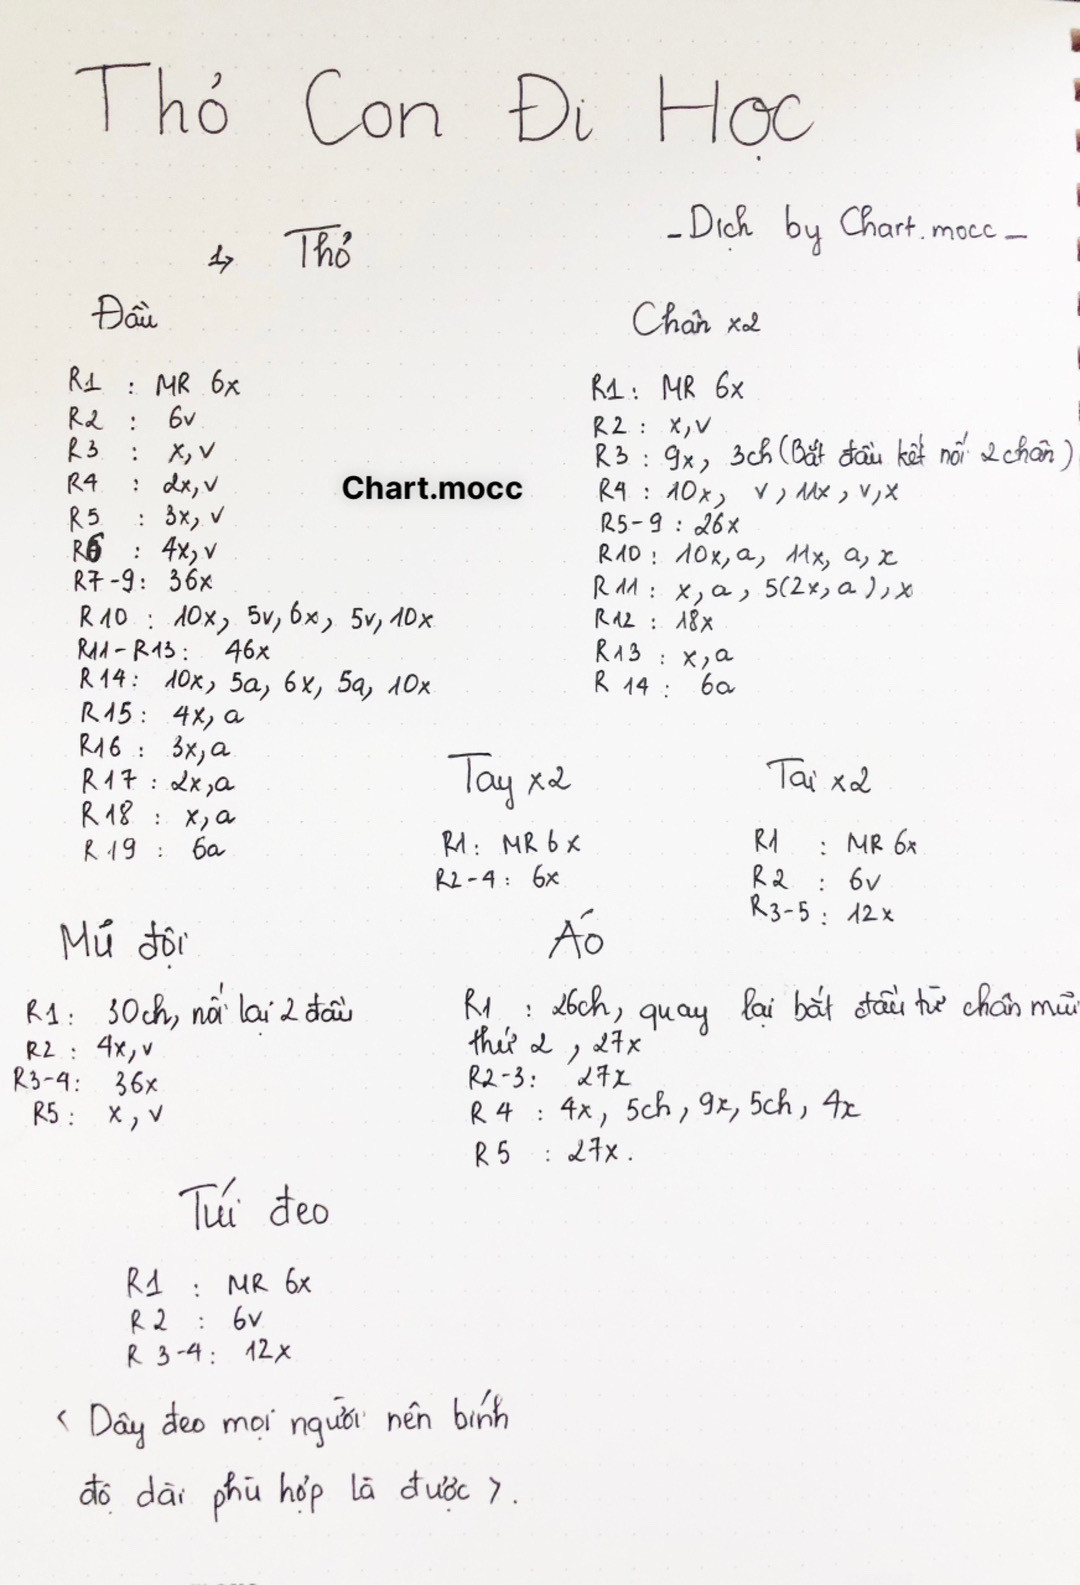 Thỏ Con Đi Học
_Dịch by Chart.mocc_
1, Thỏ
Đầu
R1 : MR 6x
R2 : 6v
R3 : x, v
R4 : 2x, v
R5 : 3x, v
R6 : 4x, v
R7-9: 36x
R10 : 10x, 5v, 6x, 5v, 10x
R11-R13: 46x
R14: 10x, 5a, 6x, 5a, 10x
R15: 4x, a
R16 : 3x, a
R17 : 2x, a
R18 : x, a
R19 : 6a
Chart.mocc
Chân x2
R1: MR 6x
R2 : x, v
R3 : 9x, 3ch (Bắt đầu kết nối 2 chân)
R4 : 10x, v, 11x, v, x
R5-9 : 26x
R10 : 10x, a, 11x, a, x
R11 : x, a, 5(2x, a), x
R12 : 18x
R13 : x, a
R14 : 6a
Tay x2
R1: MR 6x
R2-4: 6x
Tai x2
R1 : MR 6x
R2 : 6v
R3-5 : 12x
Mũ đội
R1: 30ch, nối lại 2 đầu
R2 : 4x, v
R3-4: 36x
R5 : x, v
Áo
R1 : 26ch, quay lại bắt đầu từ chân mũi
thứ 2, 27x
R2-3: 27x
R4 : 4x, 5ch, 9x, 5ch, 4x
R5 : 27x.
Túi đeo
R1 : MR 6x
R2 : 6v
R3-4: 12x
< Dây đeo mọi người nên bính
độ dài phù hợp là được >.